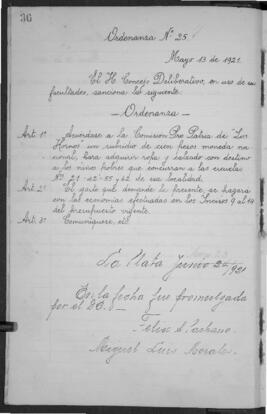 36
Ordenanza Nº 25
Mayo 13 de 1921.
El H. Concejo Deliberativo, en uso de sus
facultades, sanciona la siguiente
— Ordenanza —
Art. 1º Acuérdase a la Comisión Pro Patria de "Los
Hornos" un subsidio de cien pesos moneda na
cional, para adquirir ropa y calzado con destino
a los niños pobres que concurran a las escuelas
Nº 21 - 42 - 55 y 62 de esa localidad.
Art. 2º El gasto que demande la presente, se hagará
con las economías efectuadas en los Incisos 9 al 14
del presupuesto vigente.
Art. 3º Comuníquese, etc
La Plata Junio 2 de 1921
En la fecha fue promulgada
por el
Felix A.
Miguel Luis Morales.